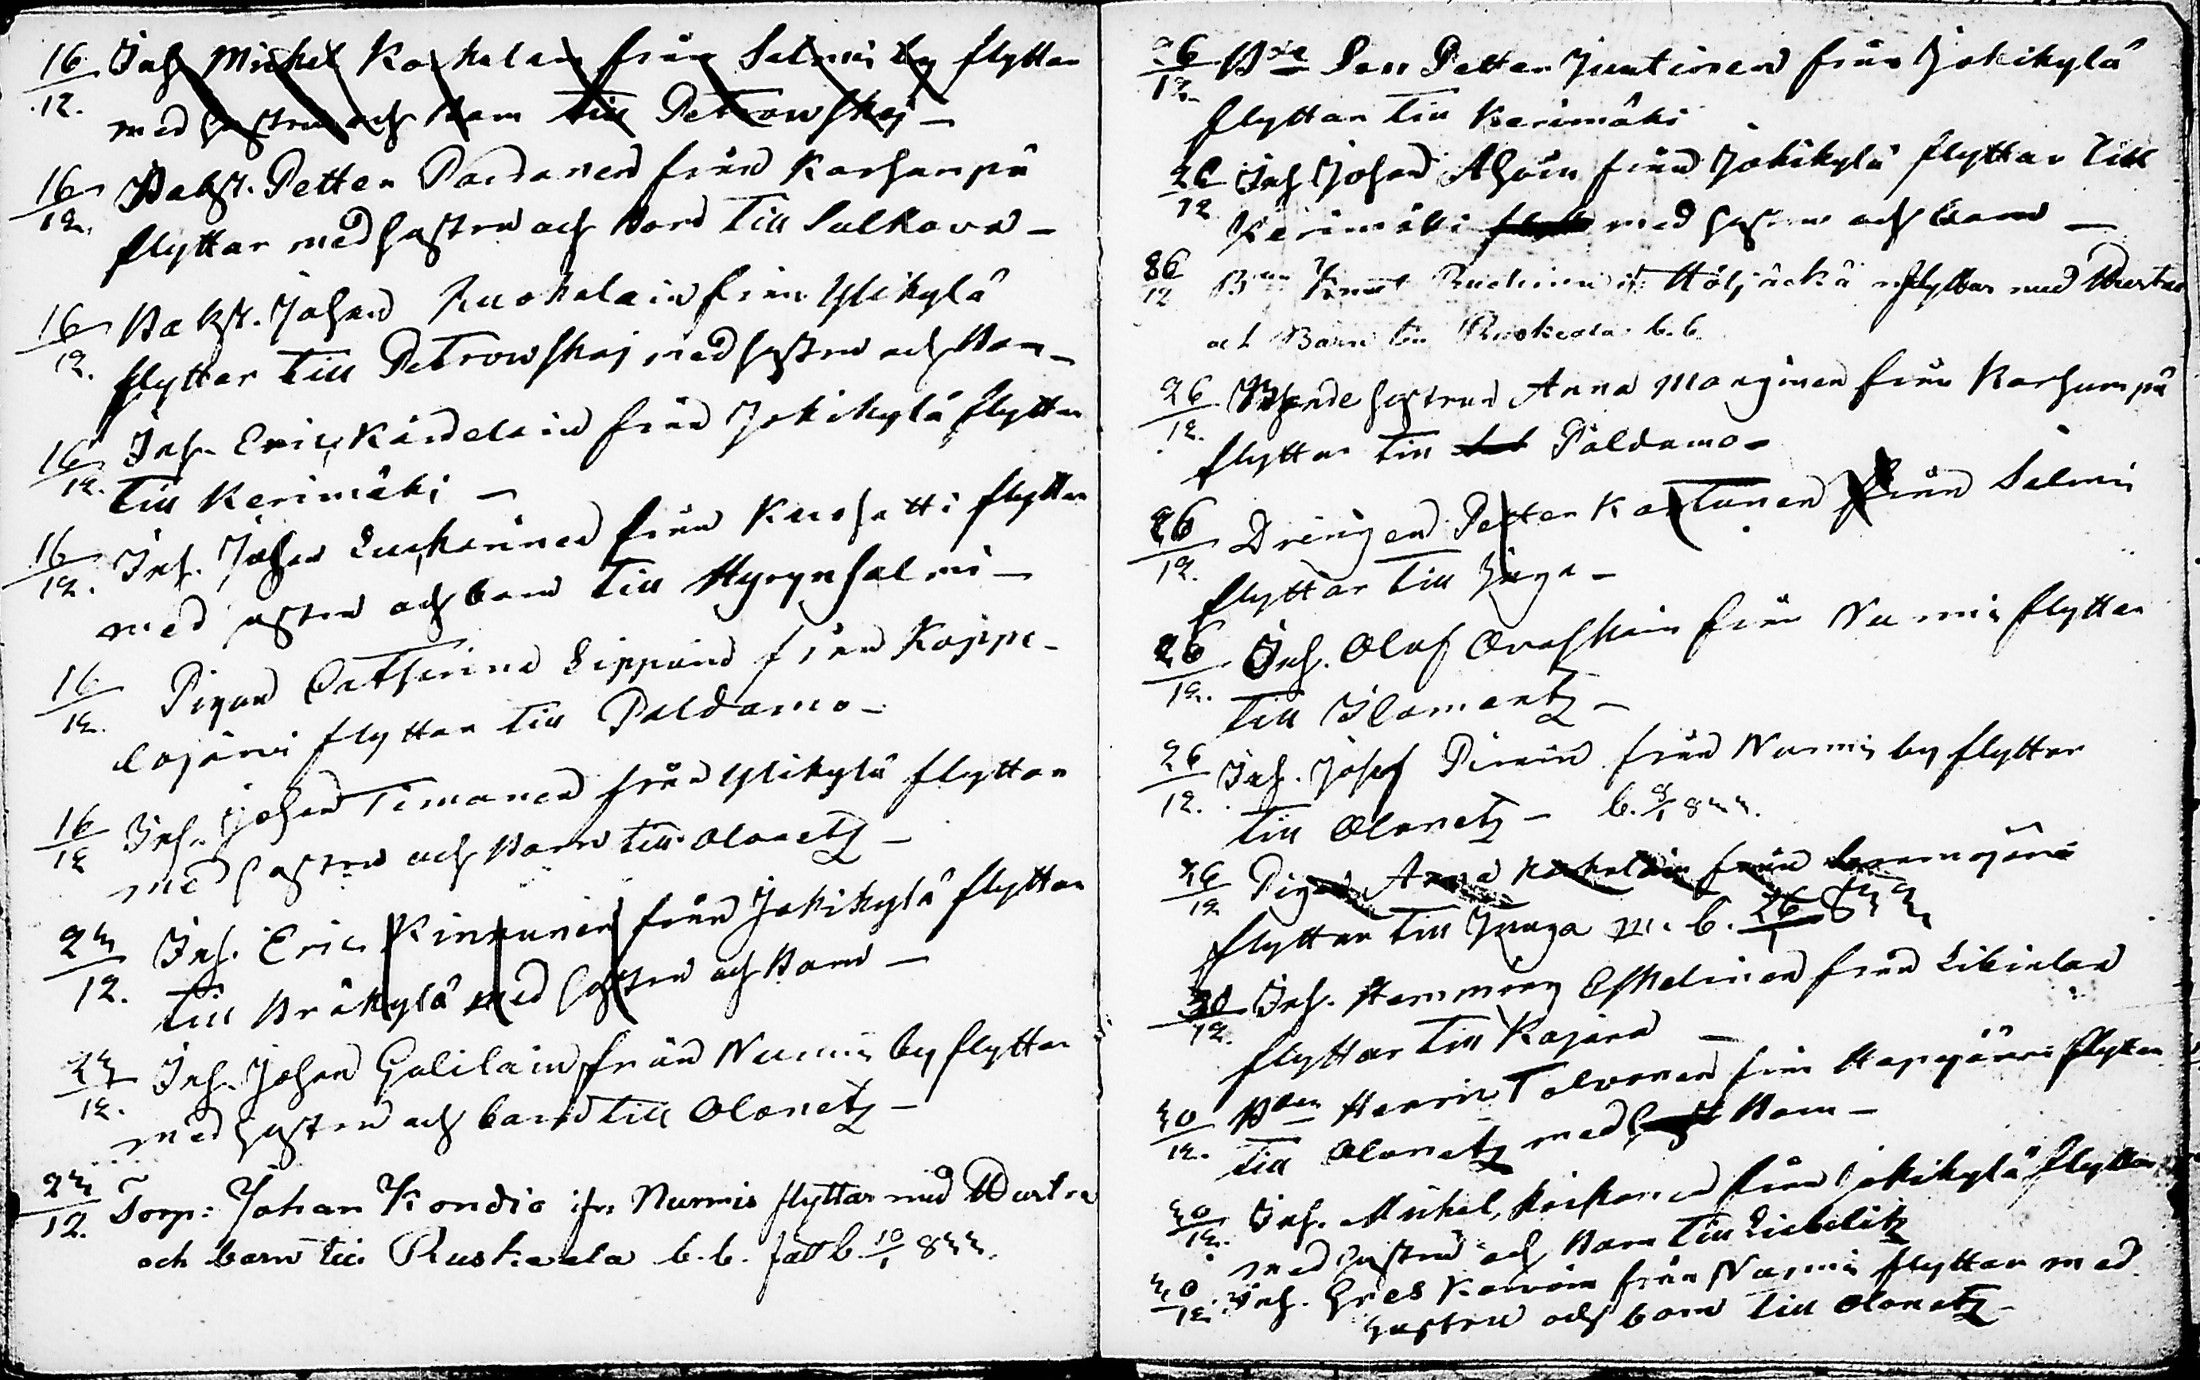 16/12. Inh Michel Kokelain från Salmis by flyttar
med hustru och barn till Petrowskoj —
16/12. Backst. Petter Pardanen från Karhunpä
flyttar med hustru och barn till Sulkava —
16/12. Backst. Johan Kuokelain från Ylikylä
flyttar till Petrowskoj med hustru och barn —
16/12. Inh. Eric Kärdelain från Jokikylä flyttar
till Kerimäki —
16/12. Inh. Johan från Kuohatti flyttar
med hustru och barn till Hyrynsalmi —
16/12. Pigan Catharina Lippoin från Koppe-
lojärvi flyttar till Paldamo —
16/12 Inh. Johan Timonen från Ylikylä flyttar
med hustru och barn till Olonetz —
23/12. Inh. Eric Kinnunen från Jokikylä flyttar
till Bräkylä med hustru och barn —
23/12. Inh. Johan Galilain från Nurmis by flyttar
med hustru och barn till Olonetz —
23/12. Torp: Johan Kondio ifr. Nurmis flyttar med Hustru
och barn till Ruskeala b. b. fått b. 10/1 833.
26/12 Bde Son Petter Juutinen från Jokikylä
flyttar till Kerimäki
26/12 Inh Johan Ahoin från Jokikylä flyttar till
Kerimäki med hustru och barn —
26/12 Bden ifr. Höljäckä flyttar med Hustru
och Barn till Ruskeala b. b.
26/12. hustrun Anna Manginen från Karhunpä
flyttar till Paldamo —
26/12. Drängen Petter Kartunen från Salmis
flyttar till Juga —
26/12. Inh. Olof Ovaskain från Nurmis flyttar
till Ilomantz —
26/12. Inh. Josef Pirain från Nurmis by flyttar
till Olonetz — b. 8/1 833.
26/12 Pigan Anna Kokelain från
flyttar till Juuga m. b. 26/1 833.
30/12. Inh. Hemming Eskelinen från Libielax
flyttar till Kajana —
30/12. Bden Henric Tolvanen från Hapajärvi flyttar
till Olonetz med barn —
30/12. Inh. Michel från Jokikylä flyttar
med hustru och barn till Liebelitz
30/12. Inh. Gres från Nurmis flyttar med
hustru och barn till Olonetz —